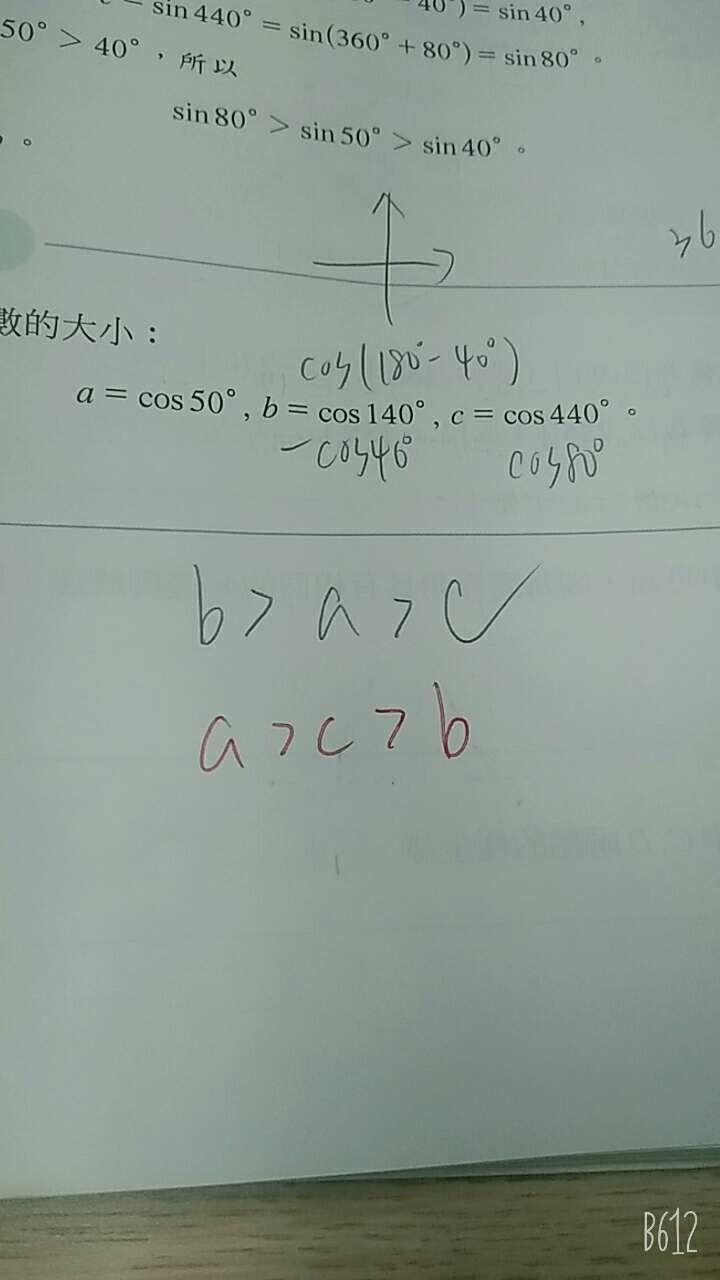 40°) = sin 40°,
sin 440° = sin(360° + 80°) = sin 80°。
50° > 40°，所以
sin 80° > sin 50° > sin 40°。
。
>b
數的大小：
cos(180° - 40°)
a = cos 50°, b = cos 140°, c = cos 440°。
-cos40° cos80°
b > a > c
a > c > b
B612